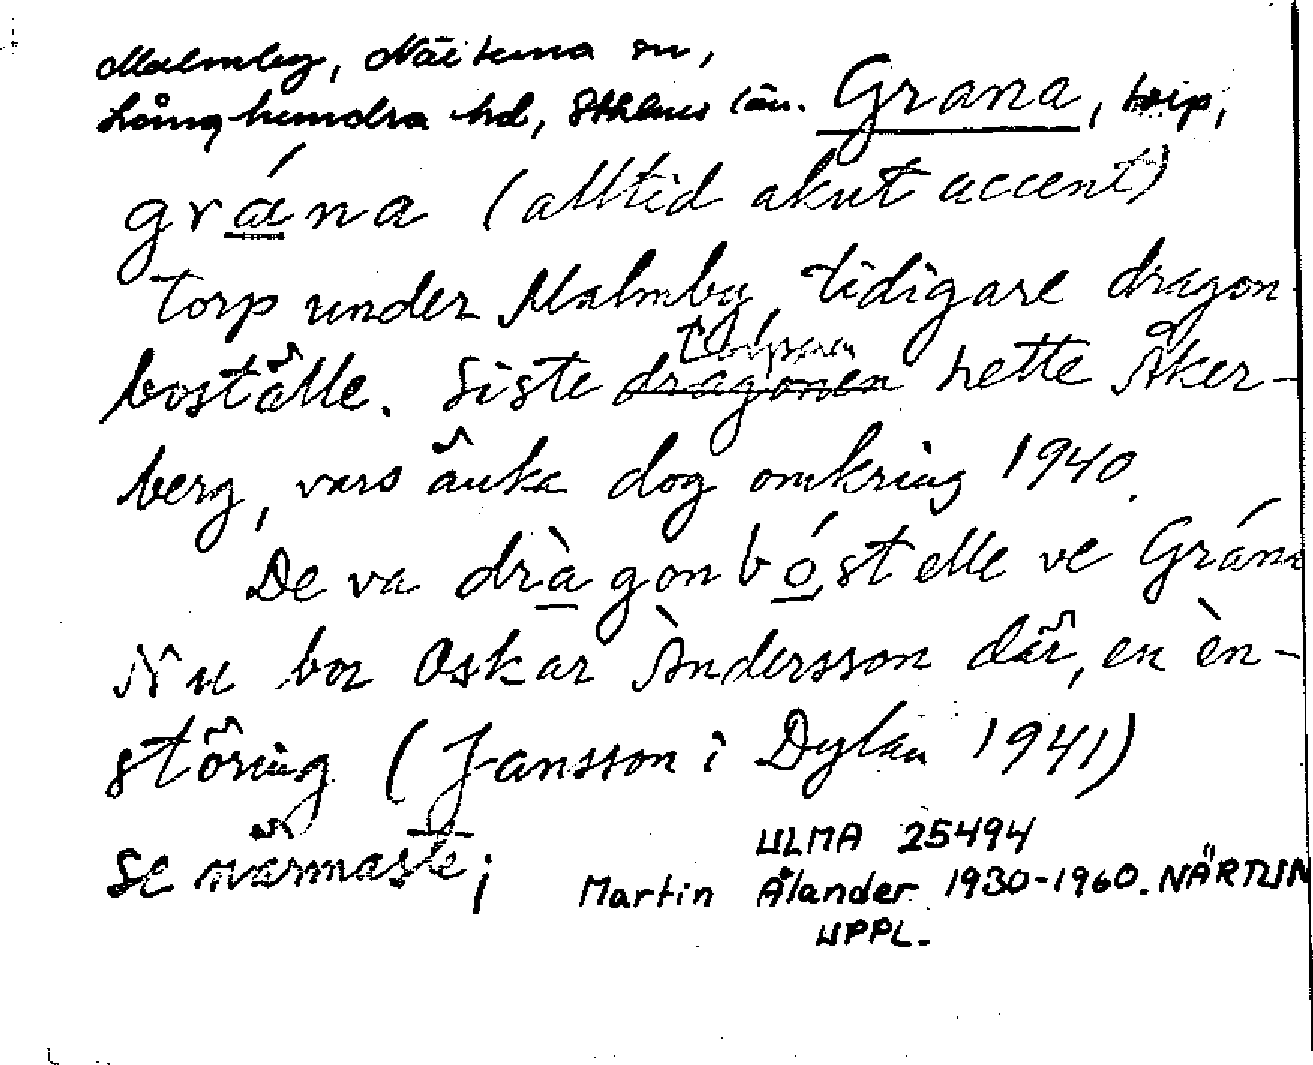 Malmby, Närtuna sn,
Långhundra hd, Sthlms län. Grana, torp,
grána (alltid akut accent)
torp under Malmby, tidigare dragon-
boställe. Siste dragonen torparen hette Åker-
berg, vars änka dog omkring 1940.
De va dràgonbóstelle ve Grána
Nu bor Oskar Àndersson där, en èn-
störing (Jansson i Dylån 1941)
Se närmast;
ULMA 25494
Martin Ålander 1930-1960. NÄRTUNA
UPPL.